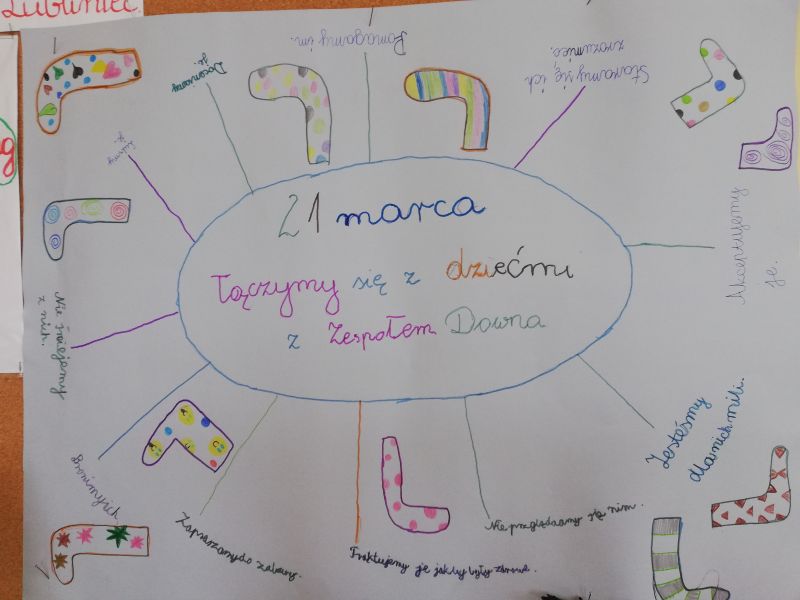 Lubliniec
21 marca
Łączymy się z dziećmi
z Zespołem Downa
Doceniamy
je.
Pomagamy im.
Staramy się ich
zrozumieć.
Akceptujemy
je.
Jesteśmy
dla nich mili.
Nie przeglądamy się nim.
Traktujemy je jakby były zdrowe.
Zapraszamy do zabawy.
Nie śmiejemy
z nich.